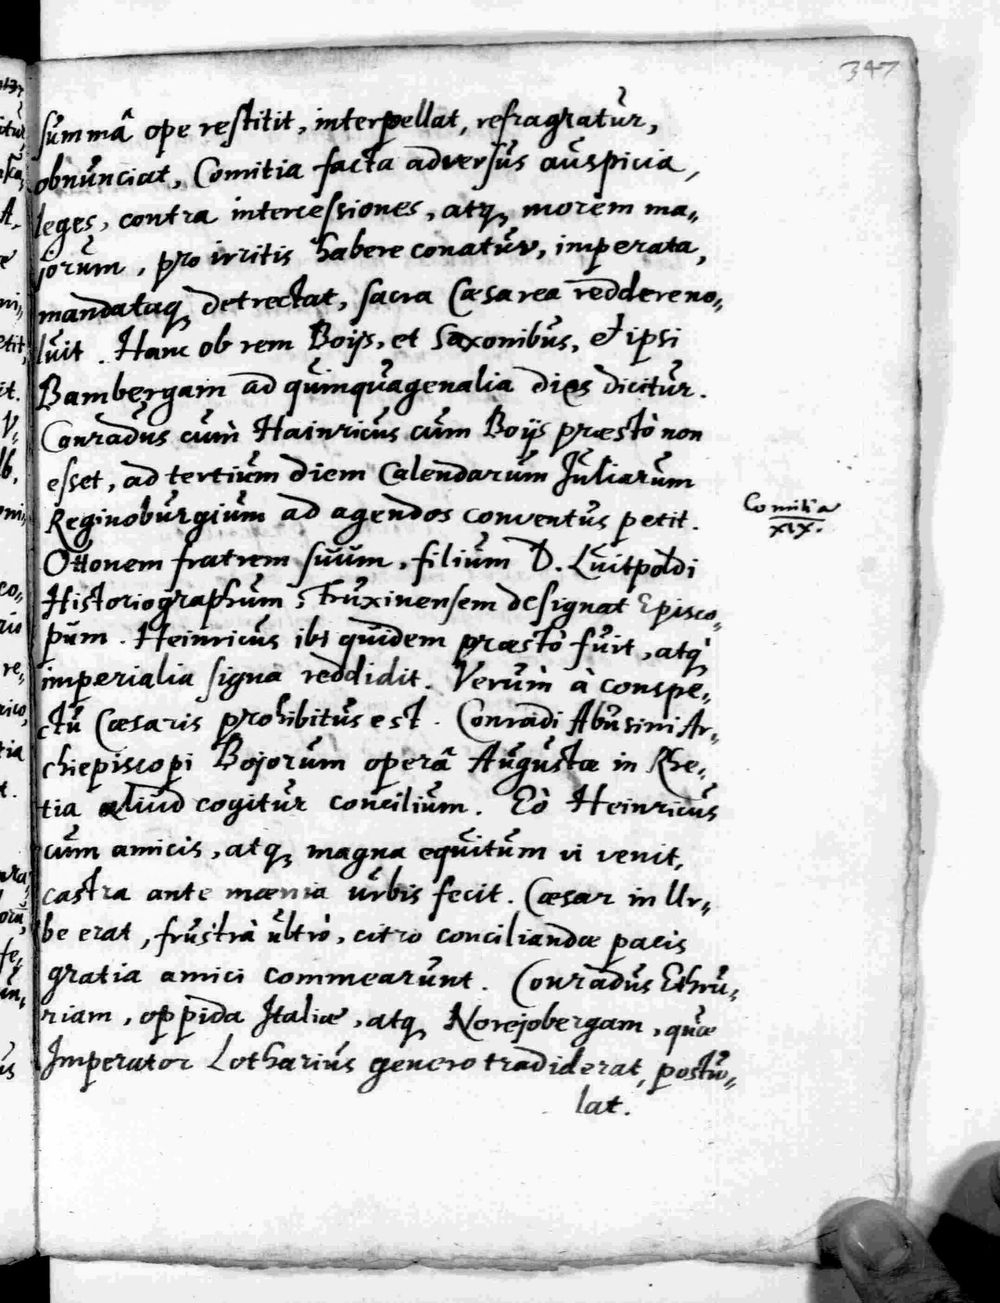 347
summâ ope restitit, interpellat, refragratur,
obnunciat, Comitia facta adversus auspicia,
leges, contra intercessiones, atq, morem ma„
jorum, pro irritis habere conatur, imperata,
mandataq detrectat, sacra Cæsarea reddere no„
luit. Hanc ob rem Boijs, et Saxonibus, et ipsi
Bambergam ad quinquagenalia dies dicitur.
Conradus cum Hainricus cum Boijs præstò non
esset, ad tertium diem Calendarum Juliarum
Reginoburgium ad agendos conventus petit.
Comitia
XIX.
Ottonem fratrem suum, filium D. Luitpoldi
Historiographum, Fruxinensem designat Episco„
pum. Heinricus ibi quidem præstò fuit, atq
imperialia signa reddidit. Verùm à conspe„
ctu Cæsaris prohibitus est. Conradi Abusini Ar„
chiepiscopi Bojorum operâ Augustæ in Rhe„
tia aliud cogitur concilium. Eò Heinricus
cum amicis, atq, magna equitum vi venit,
castra ante mænia urbis fecit. Cæsar in Ur„
be erat, frustrà ultrò, citro conciliandæ pacis
gratia amici commearunt. Conradus Ethru„
riam, oppida Italiæ, atq Norejobergam, quæ
Imperator Lotharius genero tradiderat, postu„
lat.